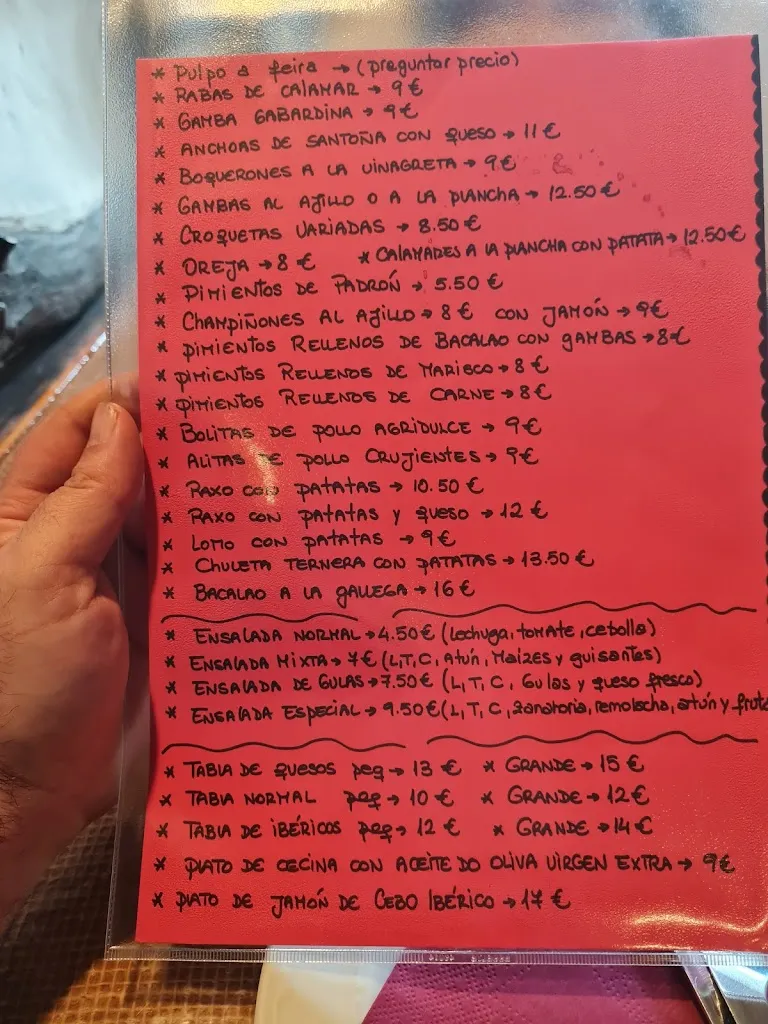 * Pulpo a feira → (preguntar precio)
* RABAS DE CALAMAR → 9€
* GAMBA GABARDINA → 9€
* ANCHOAS DE SANTOÑA CON QUESO → 11€
* BOQUERONES A LA VINAGRETA → 9€
* GAMBAS AL AJILLO O A LA PLANCHA → 12.50€
* CROQUETAS VARIADAS → 8.50€
* OREJA → 8€ * CALAMARES A LA PLANCHA CON PATATA → 12.50€
* PIMIENTOS DE PADRÓN → 5.50€
* CHAMPIÑONES AL AJILLO → 8€ CON JAMÓN → 9€
* PIMIENTOS RELLENOS DE BACALAO CON GAMBAS → 8€
* PIMIENTOS RELLENOS DE MARISCO → 8€
* PIMIENTOS RELLENOS DE CARNE → 8€
* BOLITAS DE POLLO AGRIDULCE → 9€
* ALITAS DE POLLO CRUJIENTES → 9€
* RAXO CON PATATAS → 10.50€
* RAXO CON PATATAS Y QUESO → 12€
* LOMO CON PATATAS → 9€
* CHULETA TERNERA CON PATATAS → 13.50€
* BACALAO A LA GALLEGA → 16€
* ENSALADA NORMAL → 4.50€ (Lechuga, tomate, cebolla)
* ENSALADA MIXTA → 7€ (L, T, C, Atún, Maízes y guisantes)
* ENSALADA DE GULAS → 7.50€ (L, T, C, Gulas y queso fresco)
* ENSALADA ESPECIAL → 9.50€ (L, T, C, zanahoria, remolacha, atún y fruta
* TABLA DE QUESOS peq → 13€ * GRANDE → 15€
* TABLA NORMAL peq → 10€ * GRANDE → 12€
* TABLA DE IBÉRICOS peq → 12€ * GRANDE → 14€
* PLATO DE CECINA CON ACEITE DO OLIVA VIRGEN EXTRA → 9€
* PLATO DE JAMÓN DE CEBO IBÉRICO → 17€